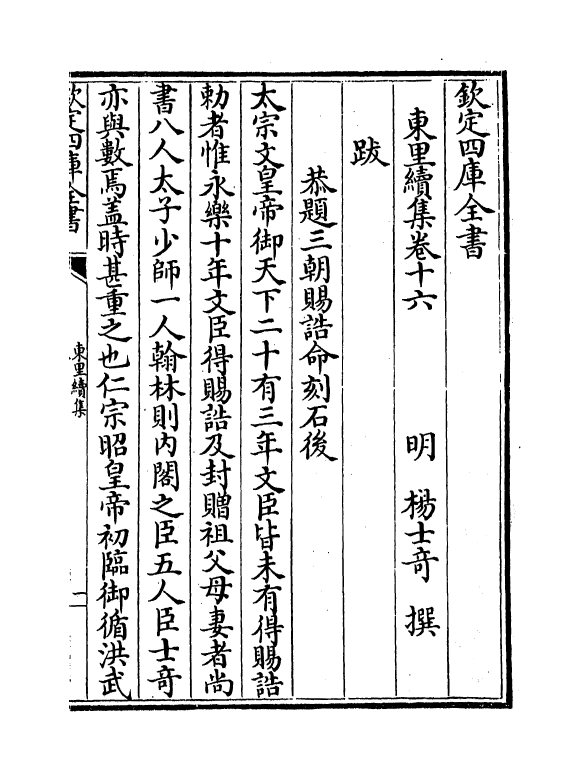 欽定四庫全書
東里續集卷十六　明　楊士奇　撰
跋
恭題三朝賜誥命刻石後
太宗文皇帝御天下二十有三年文臣皆未有得賜誥
勅者惟永樂十年文臣得賜誥及封贈祖父母妻者尚
書八人太子少師一人翰林則內閣之臣五人臣士奇
亦與數焉蓋時甚重之也仁宗昭皇帝初臨御循洪武
欽定四庫全書
東里續集